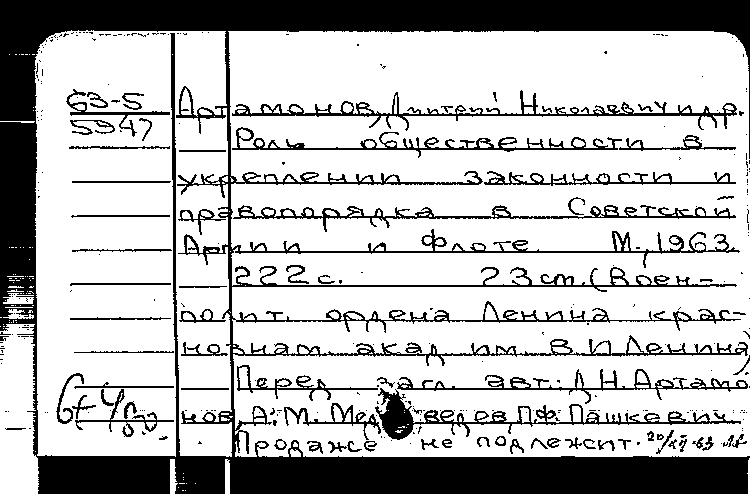 63-5 Артамонов, Дмитрий Николаевич и др.
5947 Роль общественности в
укреплении законности и
правопорядка в Советской
Армии и Флоте. М., 1963.
222 с. 23 см. (Воен.-
полит. ордена Ленина крас-
нознам. акад. им. В.И. Ленина)
Перед загл. авт.: Д.Н. Артамо-
нов, А.М. Медведев, П.Ф. Пашкевич.
Продаже не подлежит.